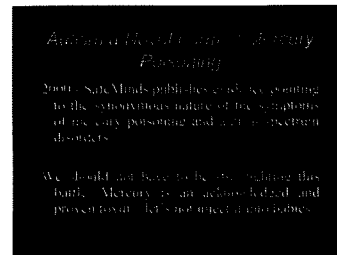 Autism: a Novel Form of Mercury
Poisoning
2000 - SafeMinds publishes evidence pointing
to the synonymous nature of the symptoms
of mercury poisoning and autism spectrum
disorders.
We should not have to be still fighting this
battle. Mercury is an acknowledged and
proven toxin let's not inject it into babies